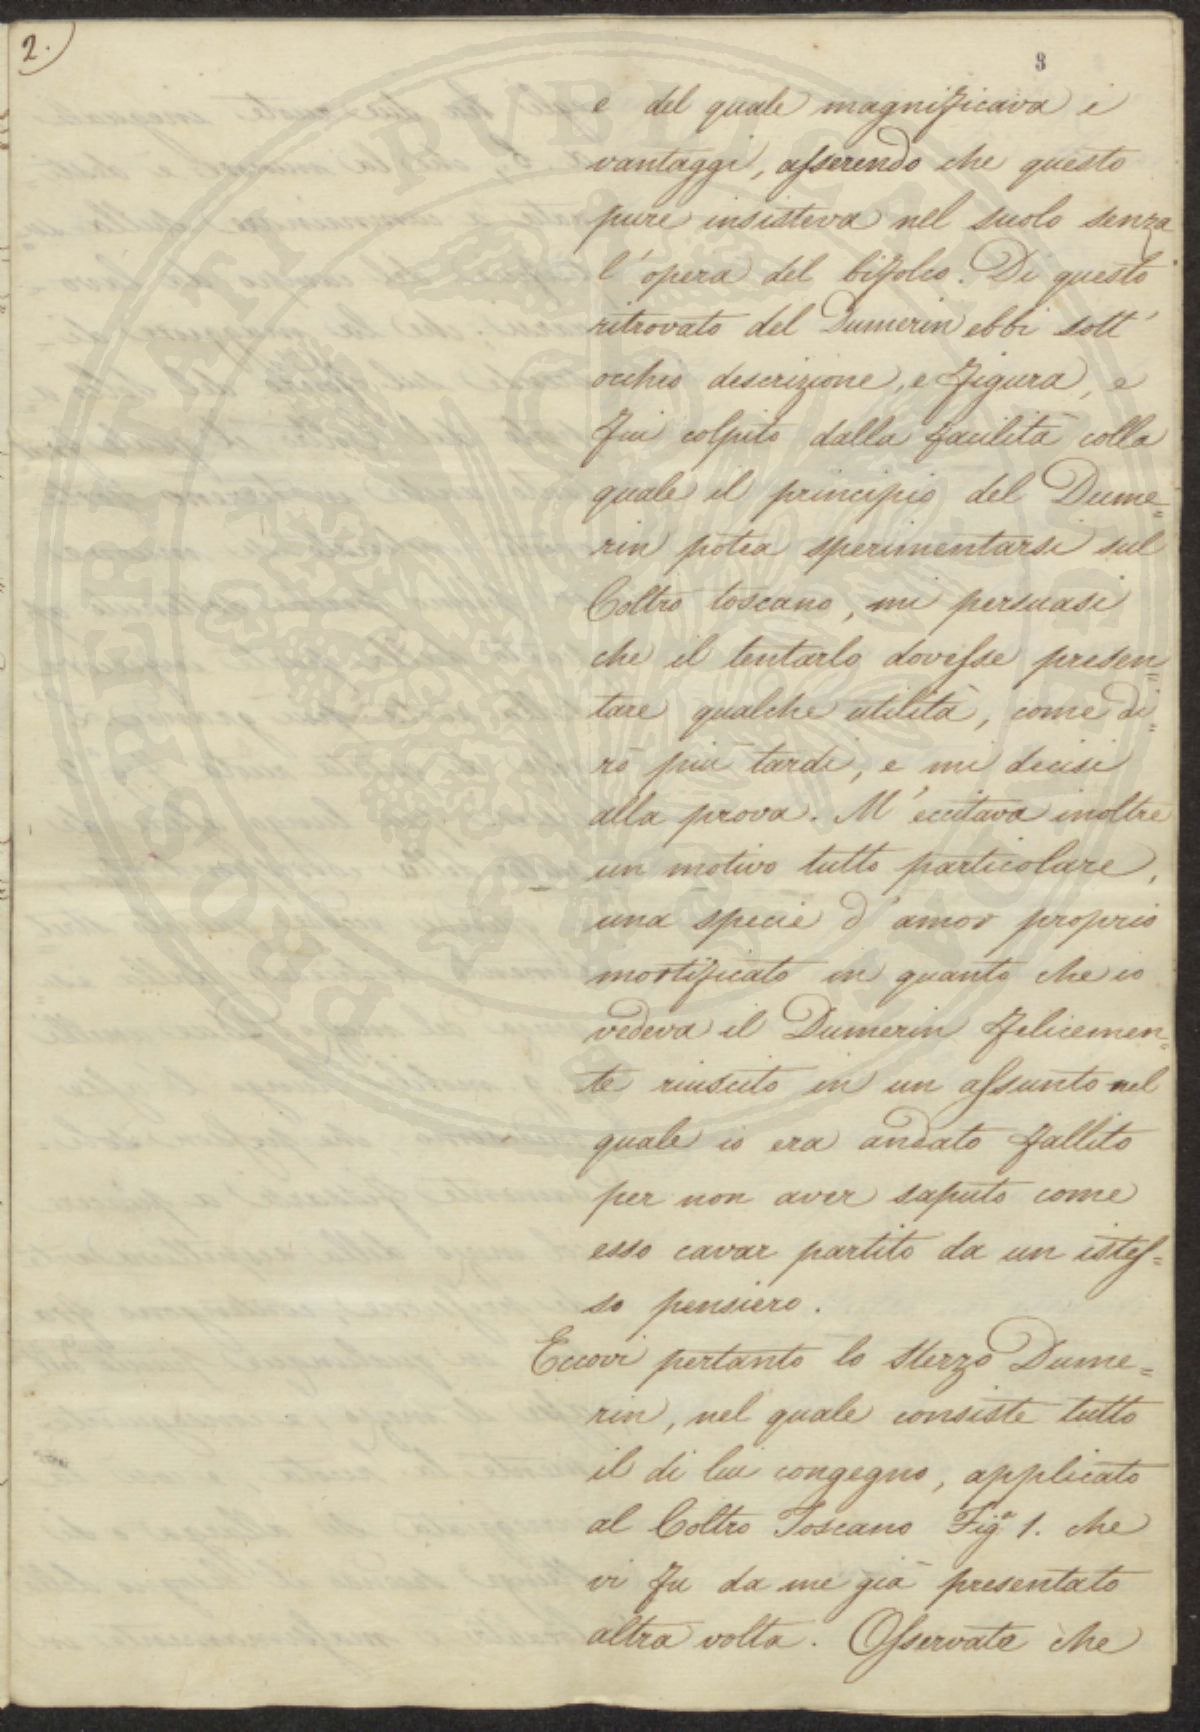 2.
8
e del quale magnificava i
vantaggi, asserendo che questo
pure insisteva nel suolo senza
l'opera del bifolco. Di questo
ritrovato del Dumerin ebbi sott'
occhio descrizione, e figura, e
fui colpito dalla facilità colla
quale il principio del Dume=
rin potea sperimentarsi sul
Coltro toscano, mi persuasi
che il tentarlo dovesse presen=
tare qualche utilità, come di=
rò più tardi, e mi decisi
alla prova. M'eccitava inoltre
un motivo tutto particolare,
una specie d'amor proprio
mortificato in quanto che io
vedeva il Dumerin felicemen=
te riuscito in un assunto nel
quale io era andato fallito
per non aver saputo come
esso cavar partito da un istes=
so pensiero.
Eccovi pertanto lo sterzo Dume=
rin, nel quale consiste tutto
il di lui congegno, applicato
al Coltro Toscano Figª 1. che
vi fu da me già presentato
altra volta. Osservate che
PROSPERITATI PUBLICAE AUGENDAE